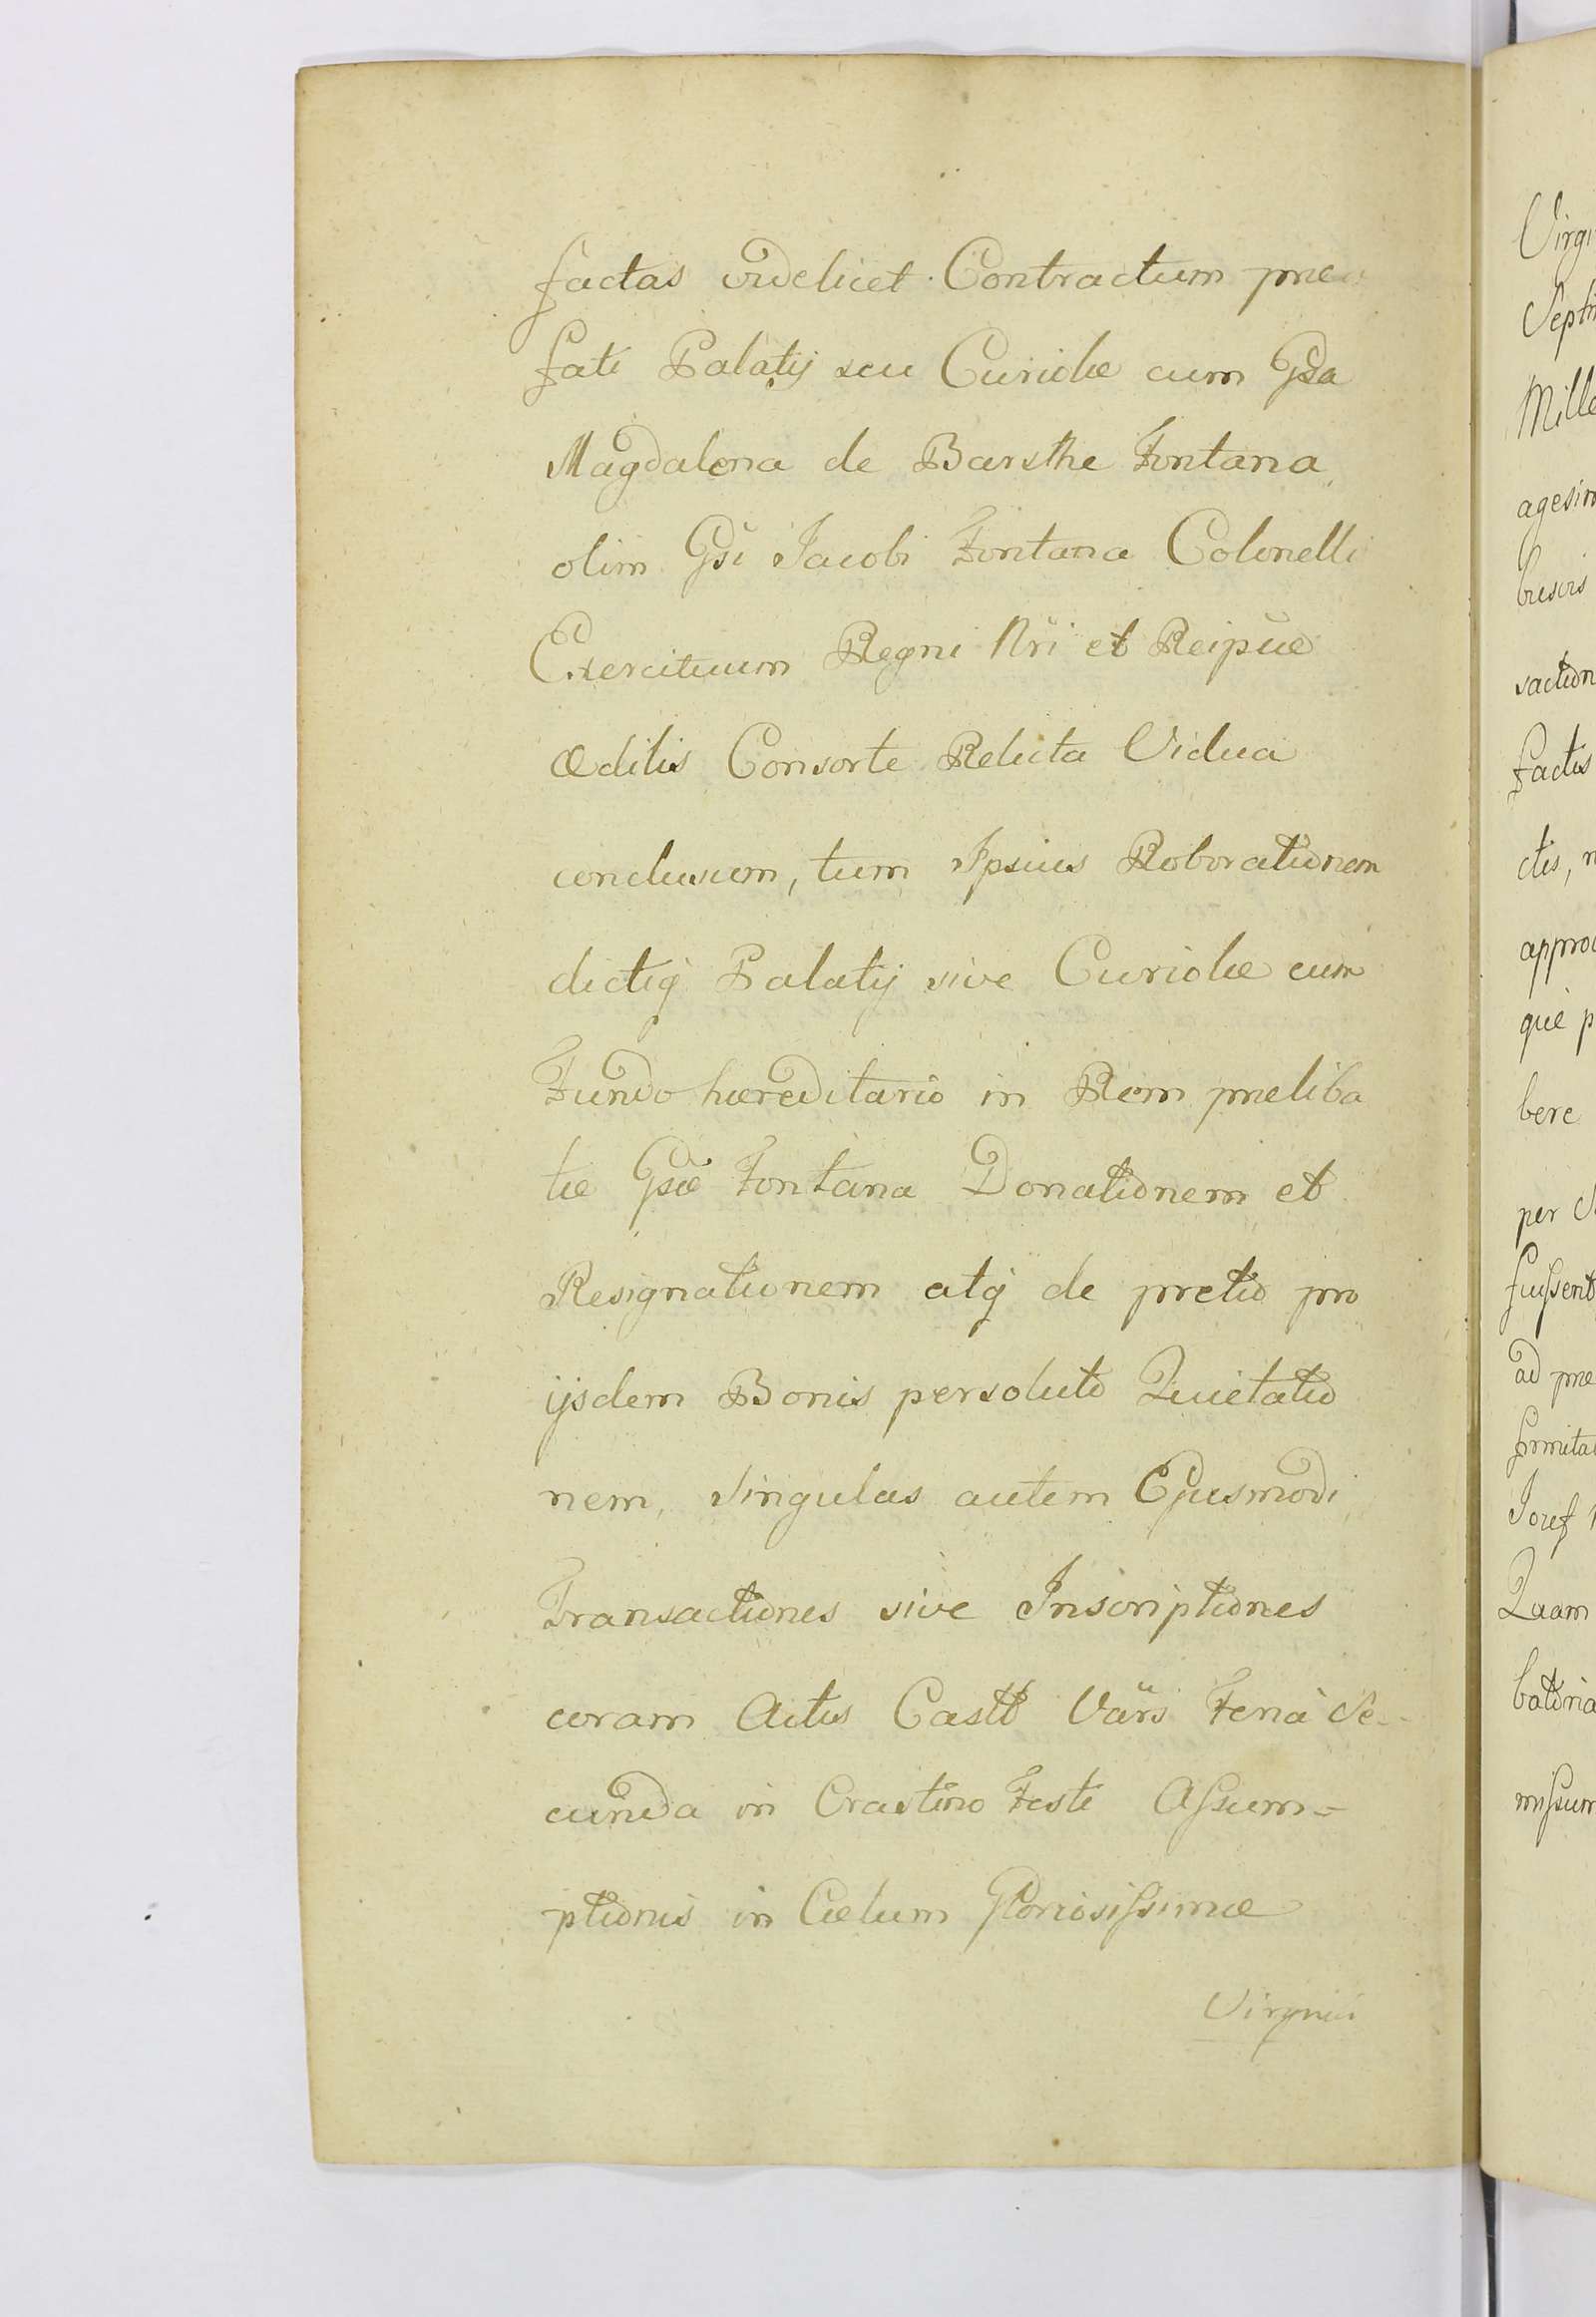 factas videlicet Contractum præ
fati Palatij seu Curiolæ cum Gsa
Magdalena de Barsthe Fontana
olim Gsi Jacobi Fontana Colonelli
Exercituum Regni Nri et Reipuæ
Ædilis Consorte Relicta Vidua
conclusum, tum Ipsius Roborationem
dictiq Palatij sive Curiolæ cum
Fundo hæreditario in Rem præliba
tæ Gsæ Fontana Donationem et
Resignationem atq de pretio pro
ijsdem Bonis persoluto Quietatio
nem, Singulas autem Ejusmodi
Transactiones sive Inscriptiones
coram Actis Castr Vars Feria Se-
cunda in Crastino Festi Assum=
ptionis in Cælum Gloriosissimæ
Virginis
Virgi
Septi
Mille
agesim
busvis
saction
factis
ctis, n
appro
què p
bere
per S
fuissent
ad præ
firmita
Josef
Quam
batoria
missum